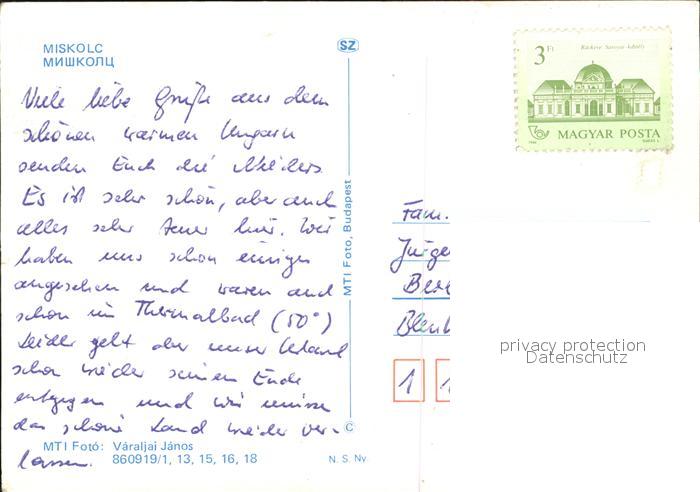 MISKOLC
МИШКОЛЦ
Viele liebe Grüße aus dem
schönen warmen Ungarn
senden Euch die
Es ist sehr schön, aber auch
alles sehr teuer hier. Wir
haben uns schon einiges
angesehen und waren auch
schon im Thermalbad (50°)
Leider geht aber unser Urlaub
schon wieder seinem Ende
entgegen und wir müssen
das schöne Land wieder ver-
lassen.
MTI Fotó: Váraljai János
860919/1, 13, 15, 16, 18
N. S. Ny.
SZ
MTI Foto, Budapest
C
3 Ft
Ráckeve Savoyai-kastély
MAGYAR POSTA
1986
Fam.
Jürge
Ber
Blen
1 1
privacy protection
Datenschutz